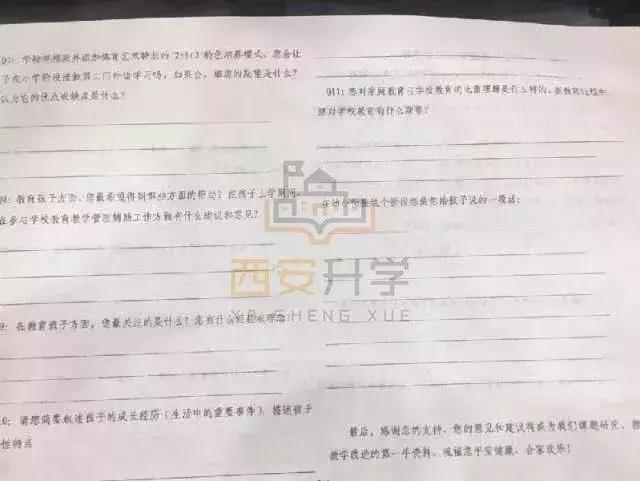 Q7：学校课程设外语加体育艺术特长的"2+1+3"特色培养模式，您会让
子在小学阶段接触第二门外语学习吗，如果会，哪您的期望是什么？
认为它的优点或缺点是什么？
Q8：教育孩子方面，您最希望得到哪些方面的帮助？在孩子上学期间，
在参与学校教育教学管理辅助工作方面有什么建议和意见？
9：在教育孩子方面，您最关注的是什么？您有什么
10：请您简要叙述孩子的成长经历（生活中的重要事件），描述孩子
性特点
Q11：您对家庭教育与学校教育的比重理解是什么样的，在教育过程中
您对学校教育有什么期望？
在幼小衔接这个阶段您最想给孩子说的一段话：
最后，感谢您的支持，您的意见和建议将成为我们课题研究、教
教学改进的第一手资料，祝福您平安健康、合家欢乐！
西安升学
XI'AN SHENG XUE